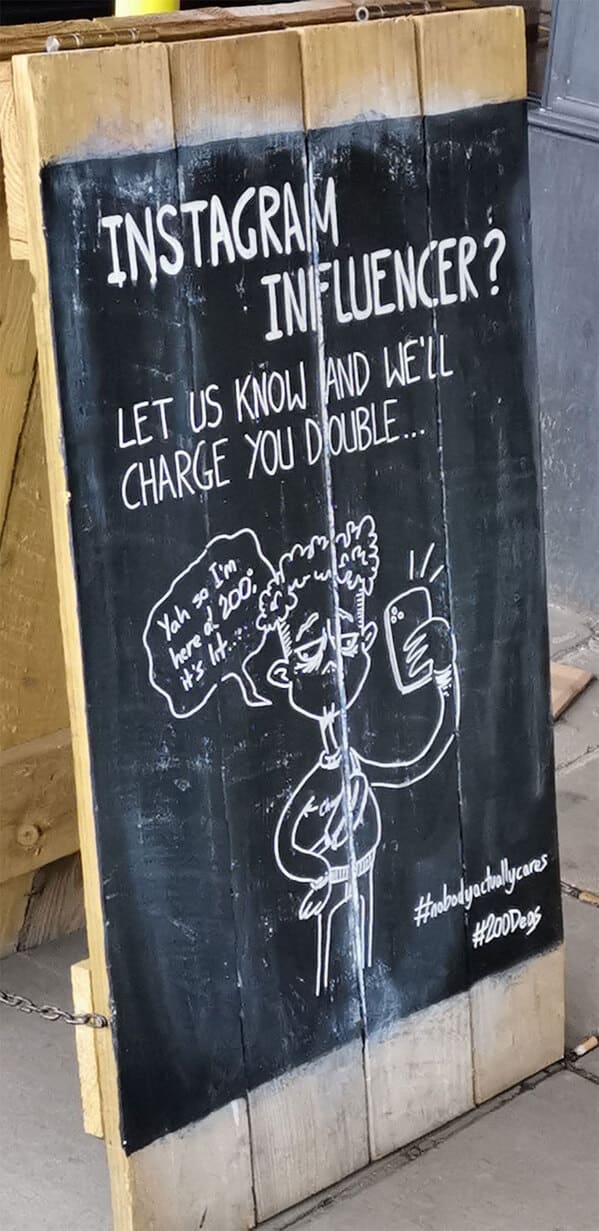 INSTAGRAM
INFLUENCER?
LET US KNOW AND WE'LL
CHARGE YOU DOUBLE...
Yah so I'm
here at 200°
it's lit...
#nobodyactuallycares
#200Degs